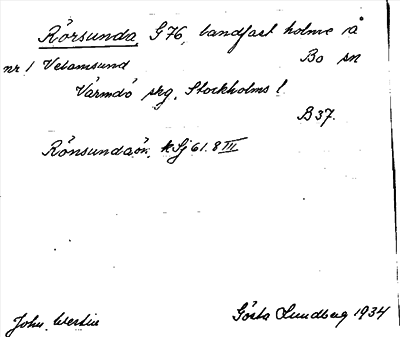 Rörsunda, G76, landfast holme å
nr 1 Velamsund Bo sn
Värmdö skg. Stockholms l.
B37.
Rönsundaön, kSj 61.8 III
John. Westin Gösta Lundberg 1934